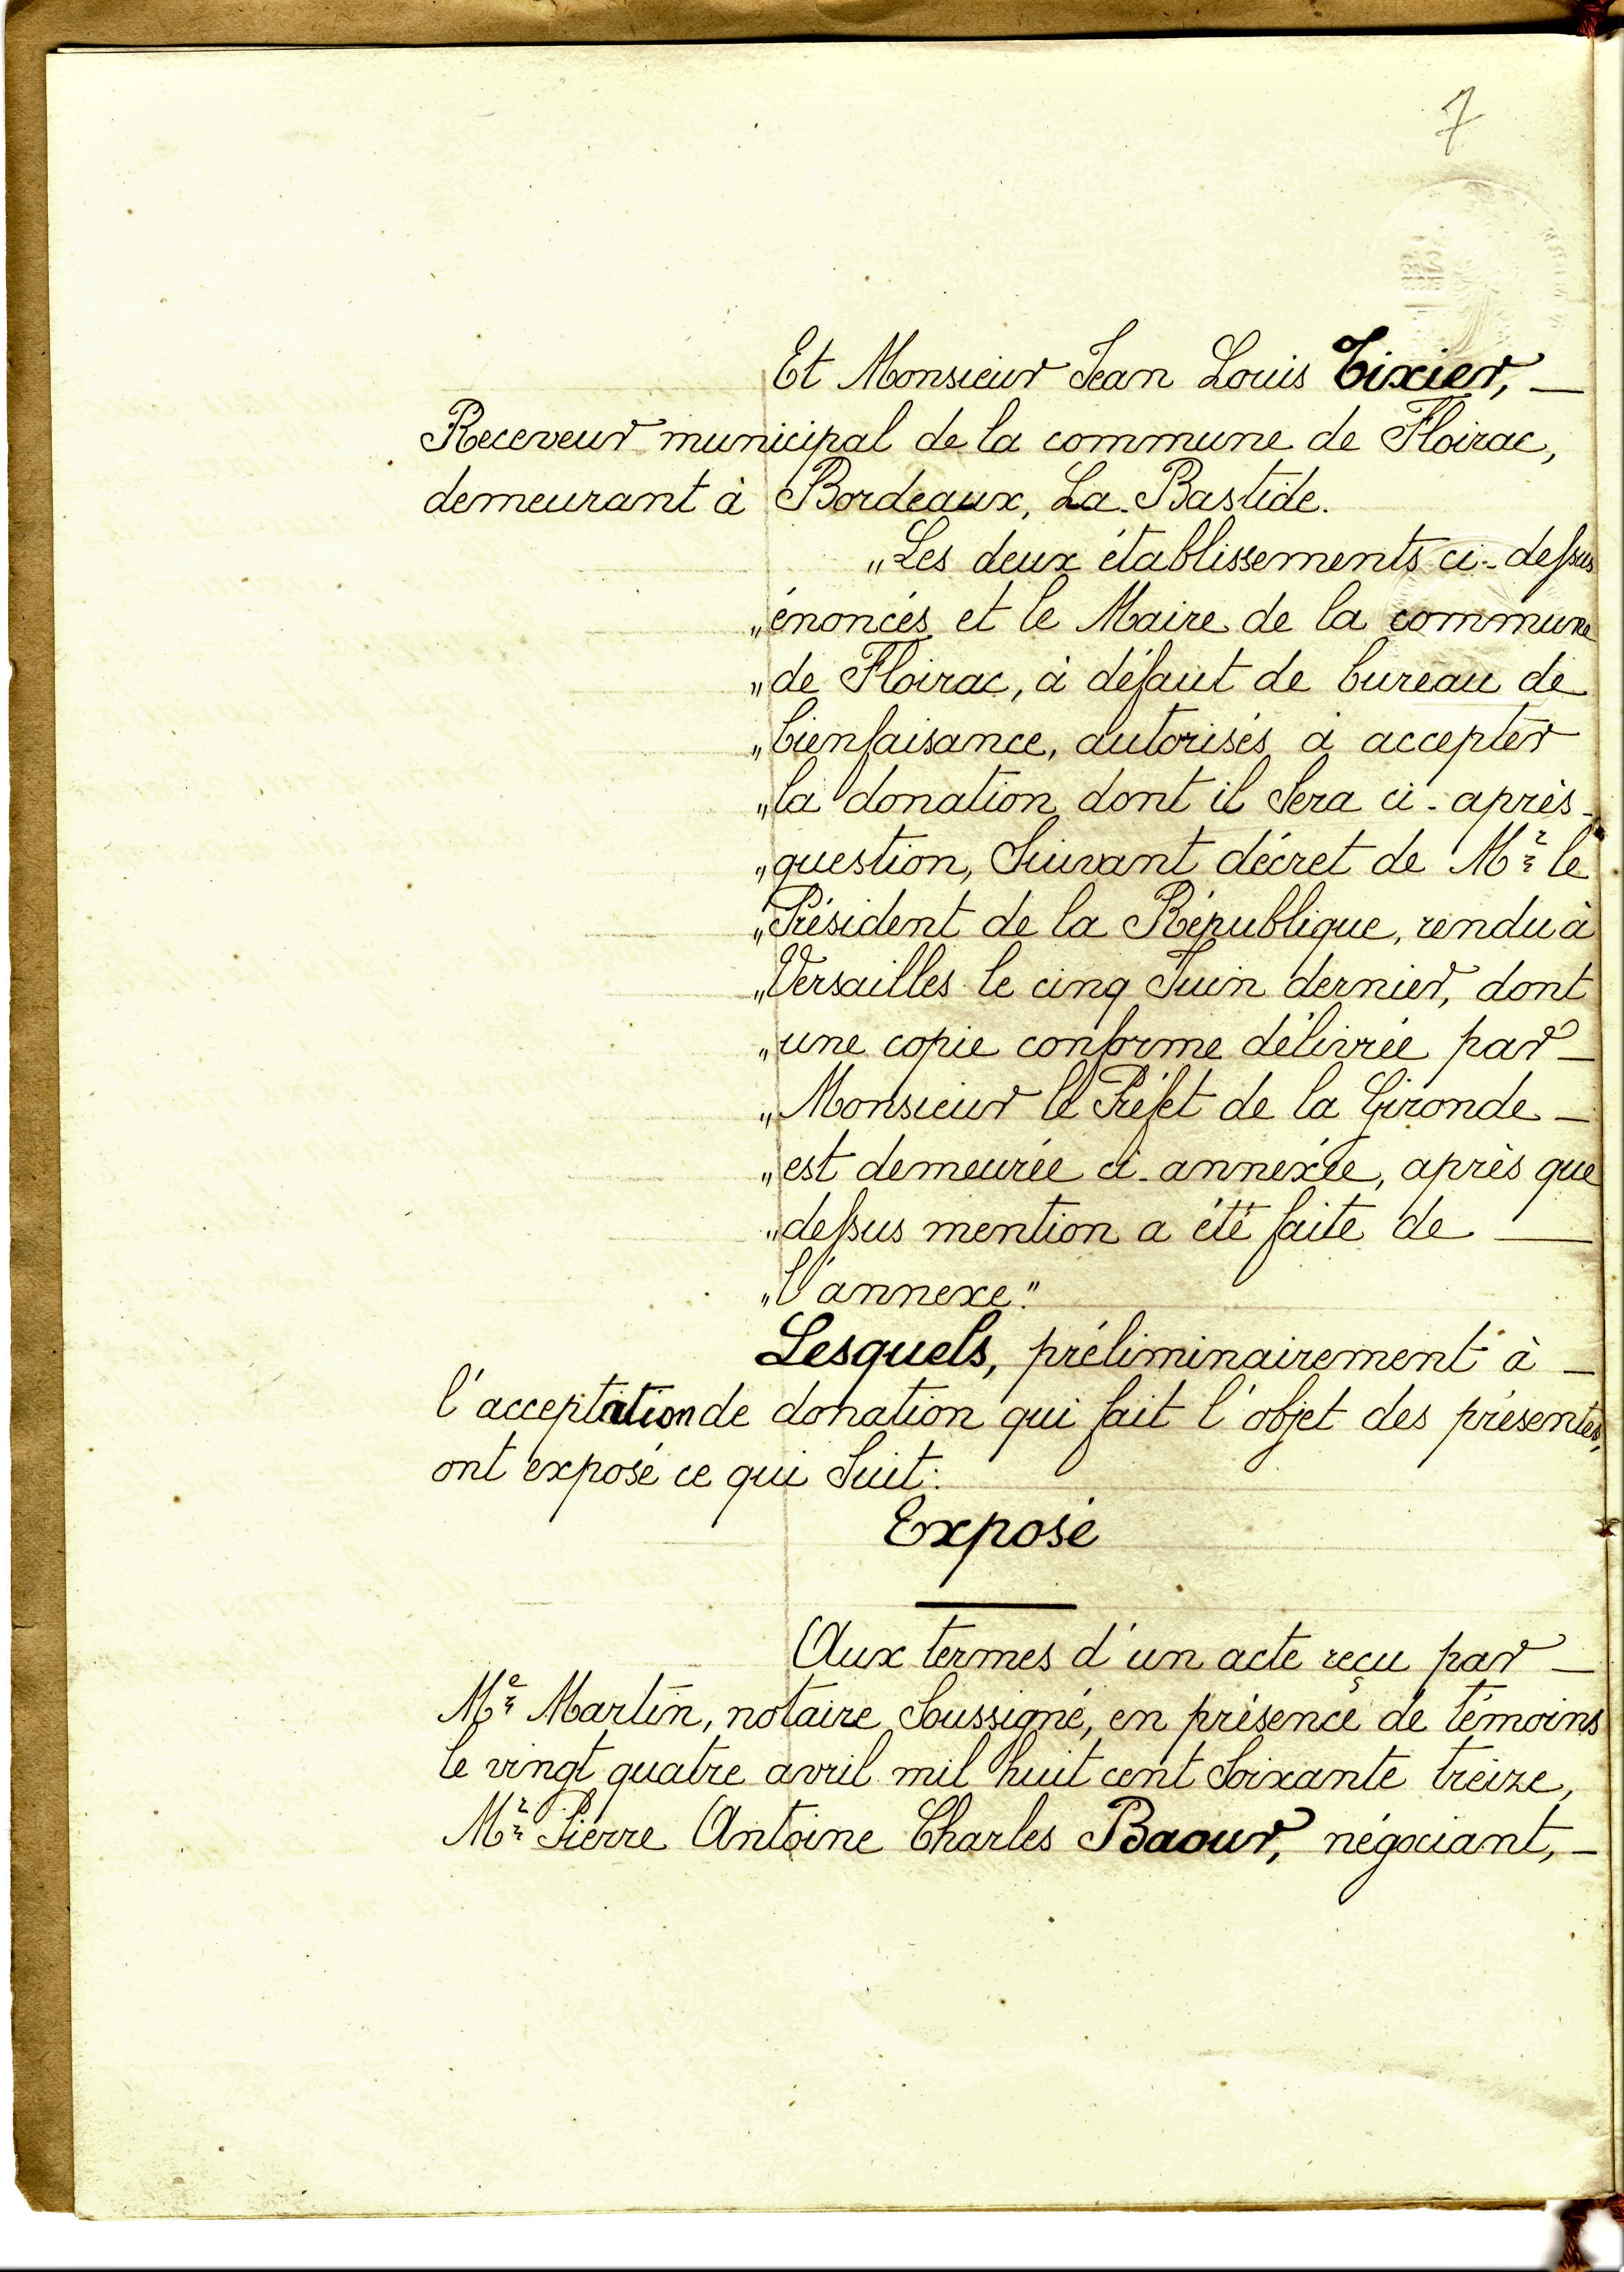 7
Et Monsieur Jean Louis Tixier, —
Receveur municipal de la commune de Floirac,
demeurant à Bordeaux, La Bastide.
„Les deux établissements ci-dessus
„énoncés et le Maire de la commune
„de Floirac, à défaut de bureau de
„bienfaisance, autorisés à accepter
„la donation dont il sera ci-après-
„question, suivant décret de Mr le
„Président de la République, rendu à
„Versailles le cinq Juin dernier, dont
„une copie conforme délivrée par —
„Monsieur le Préfet de la Gironde —
„est demeurée ci-annexée, après que
„dessus mention a été faite de —
„l'annexe."
Lesquels, préliminairement à —
l'acceptation de donation qui fait l'objet des présentes,
ont exposé ce qui suit:
Exposé
Aux termes d'un acte reçu par —
Me Martin, notaire soussigné, en présence de témoins
le vingt quatre avril mil huit cent soixante treize,
Mr Pierre Antoine Charles Baour, négociant, —